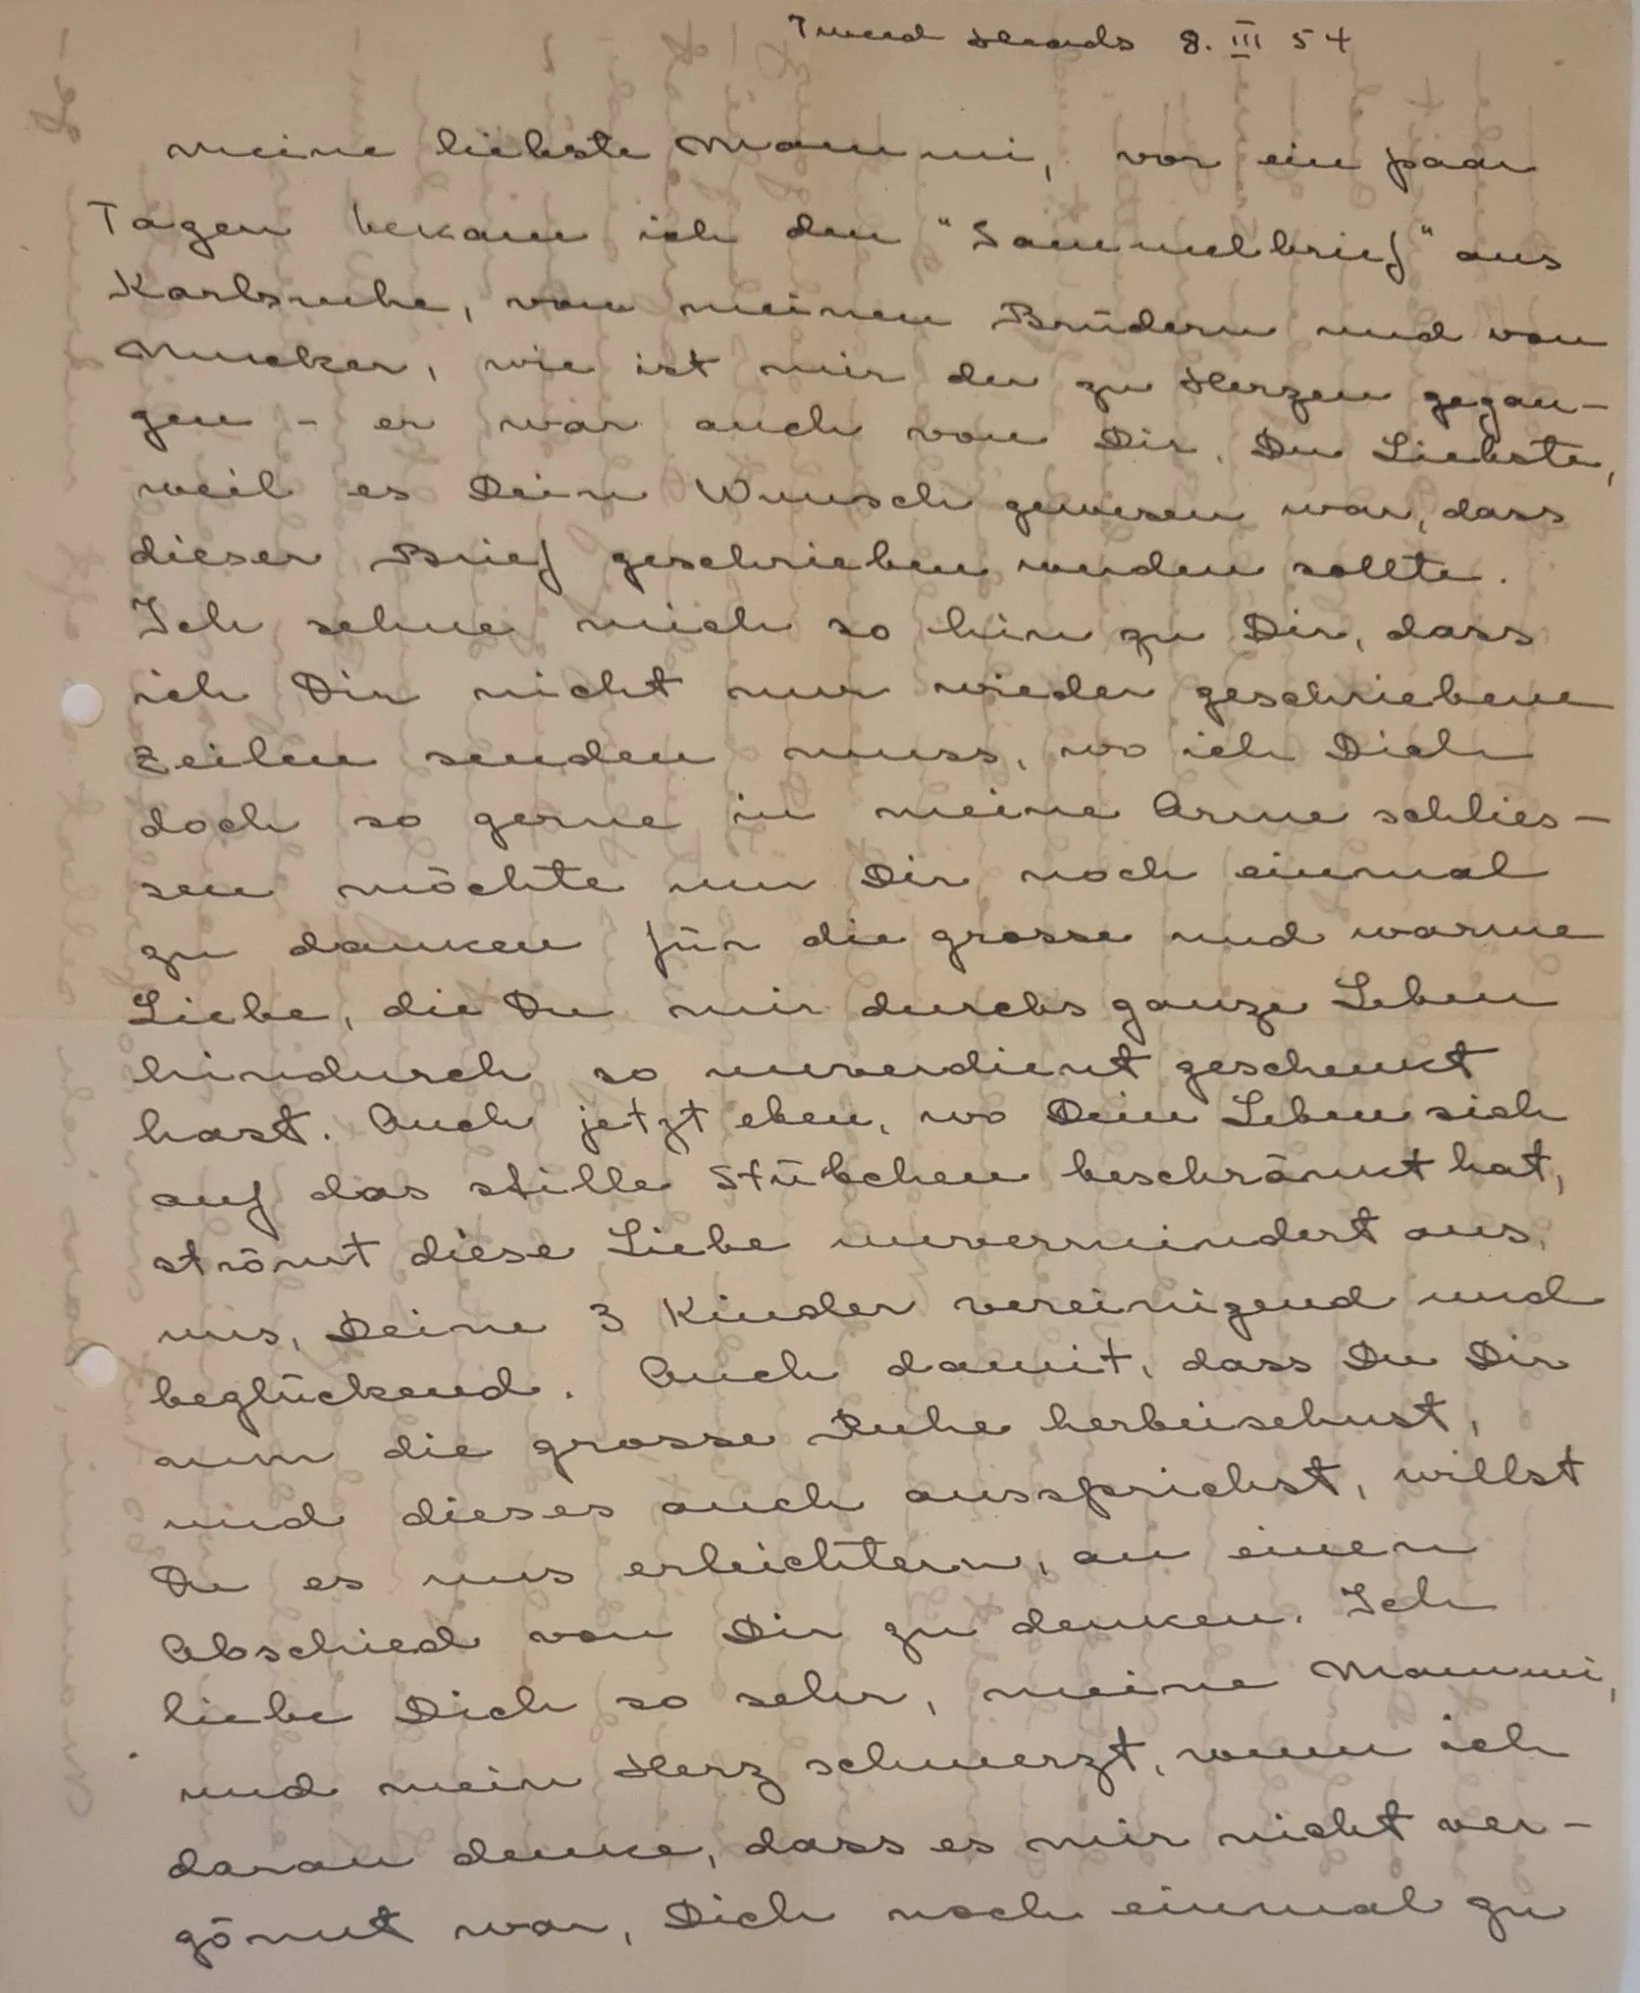 Tweed Heads 8. III 54
Meine liebste Mammi, vor ein paar
Tagen bekam ich den "Sammelbrief" aus
Karlsruhe, von meinen Brüdern und von
Mucker, wie ist mir der zu Herzen gegan-
gen - er war auch von Dir, Du Liebste,
weil es Dein Wunsch gewesen war, dass
dieser Brief geschrieben werden sollte.
Ich sehne mich so hin zu Dir, dass
ich Dir nicht nur wieder geschriebene
Zeilen senden muss, wo ich Dich
doch so gerne in meine Arme schlies-
sen möchte um Dir noch einmal
zu danken für die grosse und warme
Liebe, die Du mir durchs ganze Leben
hindurch so unverdient geschenkt
hast. Auch jetzt eben, wo Dein Leben sich
auf das stille Stübchen beschränkt hat,
strömt diese Liebe unvermindert aus,
uns, Deine 3 Kinder vereinigend und
beglückend. Auch damit, dass Du Dir
nun die grosse Ruhe herbeisehnst,
und dieses auch aussprichst, willst
Du es uns erleichtern, an einen
Abschied von Dir zu denken. Ich
liebe Dich so sehr, meine Mammi,
und mein Herz schmerzt, wenn ich
daran denke, dass es mir nicht ver-
gönnt war, Dich noch einmal zu